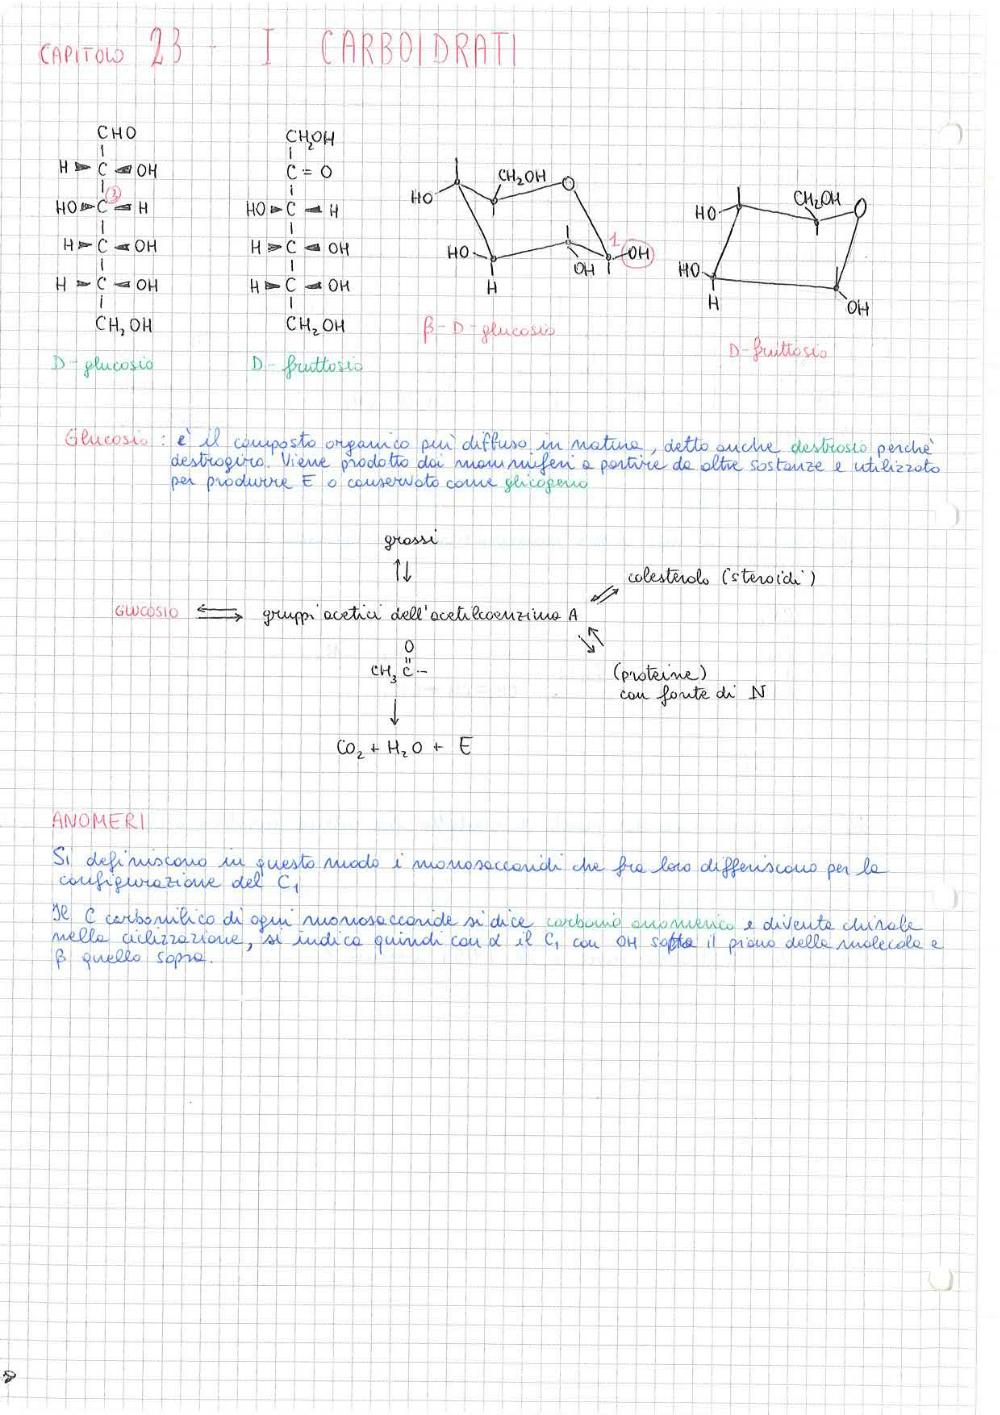 CAPITOLO 23 - I CARBOIDRATI
CHO
H C OH
3
HO C H
H C OH
H C OH
CH2OH
D-glucosio
CH2OH
C = O
HO C H
H C OH
H C OH
CH2OH
D-fruttosio
CH2OH O
HO
HO 1 OH
OH
H
β-D-glucosio
CH2OH O
HO
HO
H OH
D-fruttosio
Glucosio : è il composto organico più diffuso in natura, detto anche destrosio perchè
destrogiro. Viene prodotto dai mammiferi a partire da altre sostanze e utilizzato
per produrre E o conservato come glicogeno
grassi
⇅
colesterolo (steroidi)
GLUCOSIO ⇌ gruppi acetici dell'acetilcoenzima A
O
CH3 C -
(proteine)
con fonte di N
↓
CO2 + H2O + E
ANOMERI
Si definiscono in questo modo i monosaccaridi che fra loro differiscono per la
configurazione del C1
Il C carbonilico di ogni monosaccaride si dice carbonio anomerico e diventa chirale
nella ciclizzazione, si indica quindi con α il C1 con OH sotto il piano della molecola e
β quello sopra.
8